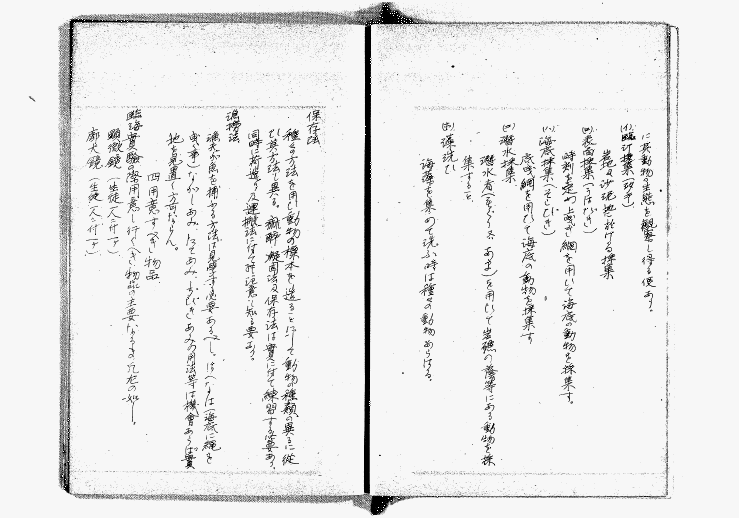 に其動物の生態を観察し得る便あり。
(イ)臨汀採集(磯牽)
岩礁及沙泥地に於ける採集
(ロ)表面採集(うはびき)
時刻を定め上曳き網を用いて海底の動物を採集す。
(ハ)海底採集(そこびき)
底曳網を用ひて海底の動物を採集す
(ニ)潜水採集
潜水者(もぐり又あま)を用ひて岩礁の蔭等にある動物を採
集すること
(ホ)藻洗ひ
海藻を集めて洗ふ時は種々の動物あらはる。
保存法
種々の方法を用ひ動物の標本を造ることにして動物の種類の異るに従
ひ其方法も異る。麻酔凝固法及保存法は実に付て練習する必要あり。
同時に荷造り及運搬法に付て注意し知る要あり。
漁撈法
漁夫が魚を捕ふる方法は見学する必要あるべし。はへなは(海底に縄を
曳く事)ながしあみ たてあみ そこびきあみの用法等は機会あらば実
地を見置く方可ならん。
四用意すべき物品
臨海実験の際用意し行くべき物品の主要なるもの左の如し。
顕微鏡(生徒 人に付一ヶ)
廓大鏡(生徒 人に付一ヶ)